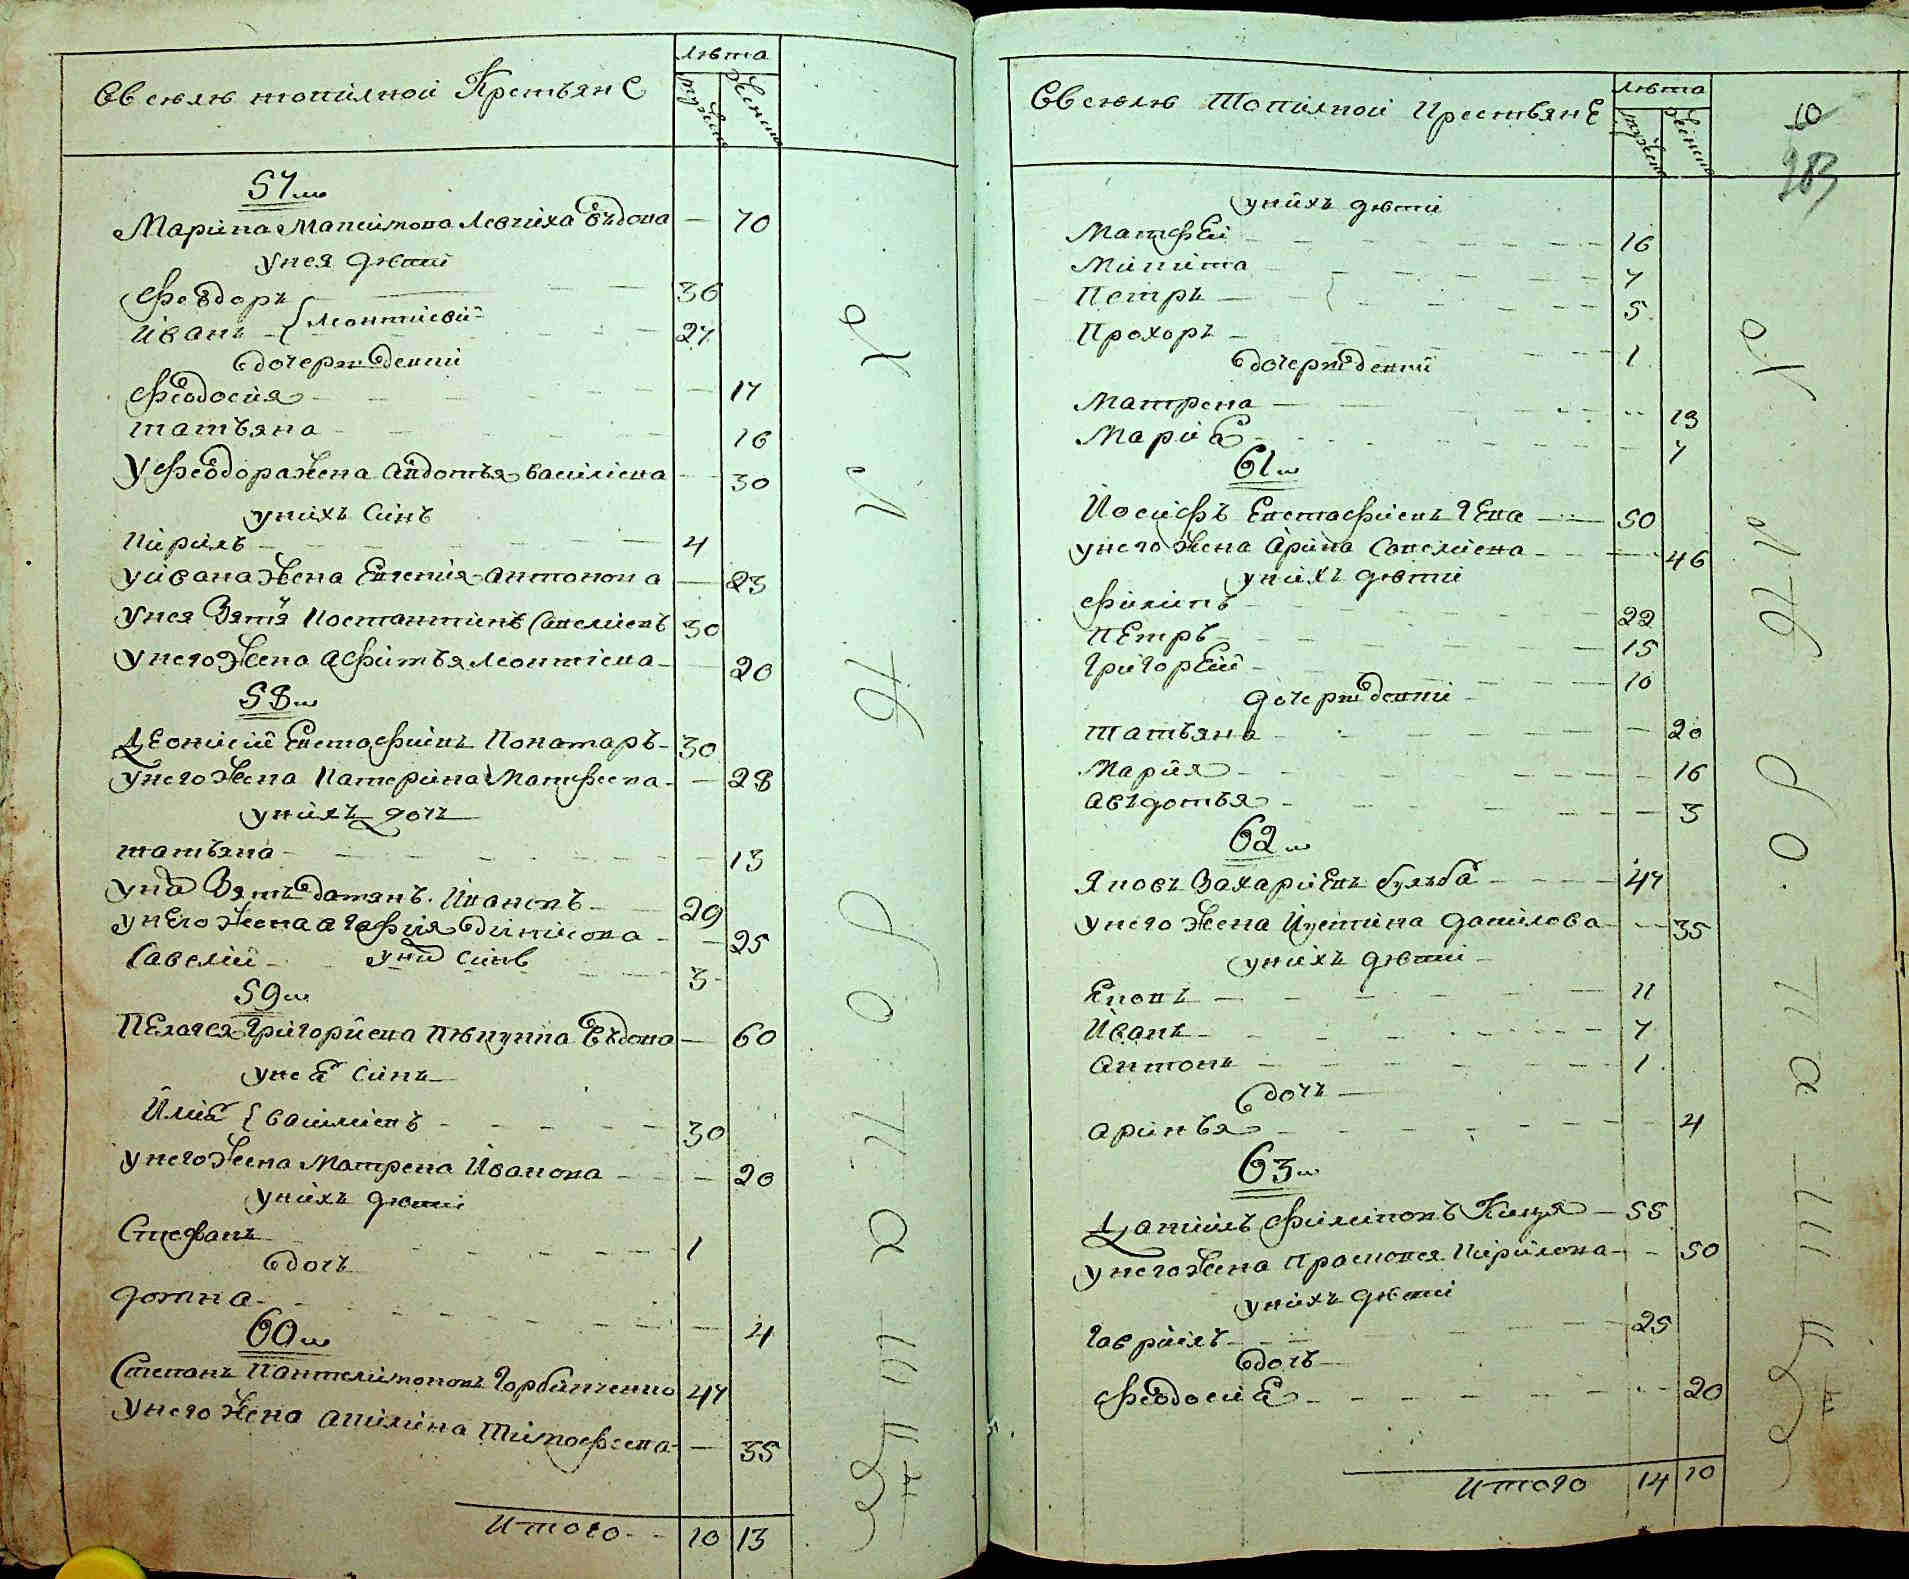 Всѣлѣ топилной Крестьяне
Лѣта
мужеска
женска
57ш
Марина Максимова Левчиха вдова — 70
унея дѣти
Феодоръ — 36
Иванъ { леонтиеви — 27
дочери девки
Феодосия — 17
татьяна — 16
У Феодора жена Авдотья василиева — 30
унихъ синъ
Кирилъ — 4
уивана жена Евгения антонова — 23
унея Зятъ Костантинъ Савелиевъ 30
унего жена Афимъя леонтиева — 20
58ш
Деонисий Евстафиевъ Понамаръ 30
унего жена Катерина Матфеева — 28
унихъ дочъ
татьяна — 13
Зятъ дамянъ Ивановъ — 29
унего жена агафия динисова — 25
Савелий синъ 3
59ш
Пелагея Григориева вдова — 60
унея синъ
Илия { василиевъ — 30
унего жена Матрена Иванова — 20
унихъ дѣти
Стефанъ — 1
дочъ
домна — 4
60ш
Степанъ Пантелимоновъ Горбанченко 47
унего жена акилина тимофеева — 35
итого — 10 13
Всѣлѣ Топилной Крестьяне
Лѣта
мужеска
женска
10
унихъ дѣти
Матфей — 16
Микита — 7
Петръ — 5
Прохоръ — 1
дочери девки
Матрена — 13
Мария — 7
61ш
Иосифъ Евстафиевъ — 50
унего жена Арина Савелиева — 46
унихъ дѣти
Филипъ — 22
Петръ — 15
Григорей — 10
дочери девки
татьяна — 20
Мария — 16
авдотья — 3
62ш
Яковъ Захариевъ булъба — 47
унего жена Иустина данилова — 35
унихъ дѣти
— 11
Иванъ — 7
антонъ — 1
дочъ
аринъя — 4
63ш
Данилъ Филиповъ — 55
унего жена Прасковея Кирилова — 50
унихъ дѣти
Гаврилъ — 25
дочъ
Феодосия — 20
итого 14 10